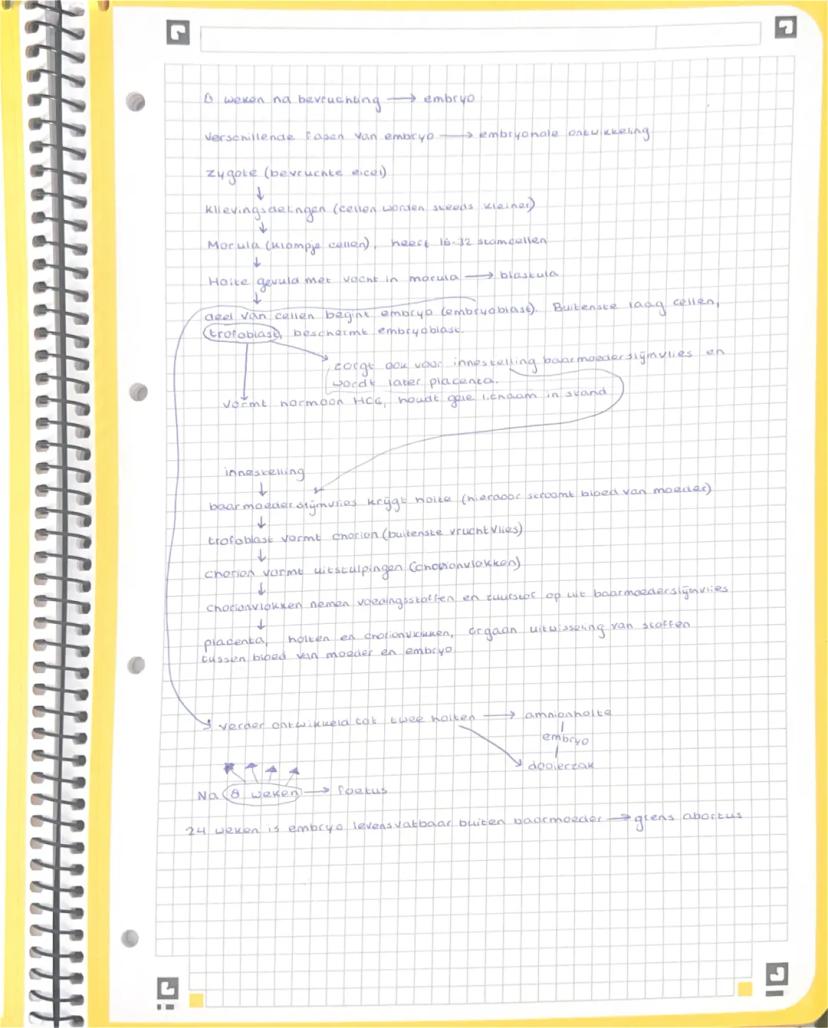 8 weken na bevruchting → embryo
Verschillende fasen van embryo → embryonale ontwikkeling
Zygote (bevruchte eicel)
↓
Klievingsdelingen (cellen worden steeds kleiner)
↓
Morula (klompje cellen), heeft 16-32 stamcellen
↓
Holte gevuld met vocht in morula → blastula
↓
deel van cellen begint embryo (embryoblast). Buitenste laag cellen,
trofoblast, beschermt embryoblast.
zorgt ook voor innesteling baarmoederslijmvlies en
wordt later placenta.
Vormt hormoon HCG, houdt gele lichaam in stand
innesteling
↓
baarmoederslijmvlies krijgt holte (hierdoor stroomt bloed van moeder)
↓
trofoblast vormt chorion (buitenste vruchtvlies)
↓
chorion vormt uitstulpingen (chorionvlokken)
↓
chorionvlokken nemen voedingsstoffen en zuurstof op uit baarmoederslijmvlies
↓
placenta, holten en chorionvlokken, orgaan uitwisseling van stoffen
tussen bloed van moeder en embryo
verder ontwikkeld tot twee holten → amnionholte
embryo
dooierzak
Na 8 weken → foetus
24 weken is embryo levensvatbaar buiten baarmoeder → grens abortus